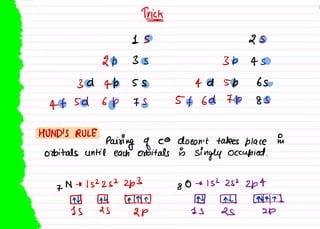 Trick
1s 2s
2p 3s 3p 4s
3d 4p 5s 4d 5p 6s
4f 5d 6p 7s 5f 6d 7p 8s
HUND'S RULE
Pairing of e⊖ doesn't takes place in
orbitals until each orbitals is singly occupied.
₇N → 1s² 2s² 2p3 ₈O → 1s² 2s² 2p4
↑↓ ↑↓ ↑ ↑ ↑ ↑↓ ↑↓ ↑↓ ↑ ↑
1s 2s 2p 1s 2s 2p